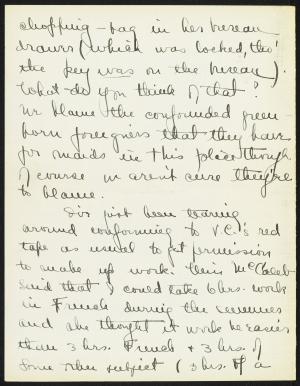 shopping-bag in her bureau
drawer (which was locked, tho'
the key was on the bureau).
What do you think of that?
We blame the confounded green-
horn foreigners that they have
for maids in this place though
of course we aren't sure they're
to blame.
I've just been tearing
around conforming to V.C.'s red
tape as usual to get permission
to make up work. Miss McCaleb
said that I could take 6 hrs. work
in French during the summer
and she thought it would be easier
than 3 hrs. French & 3 hrs. of
some other subject (3 hrs. of a